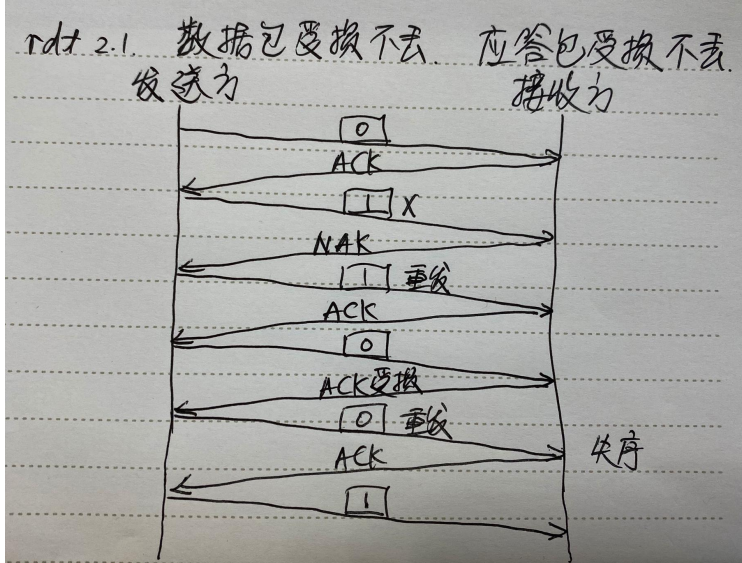 rdt 2.1. 数据包受损不丢. 应答包受损不丢.
发送方 接收方
0
ACK
1 X
NAK
1 重发
ACK
0
ACK受损
0 重发
失序
ACK
1